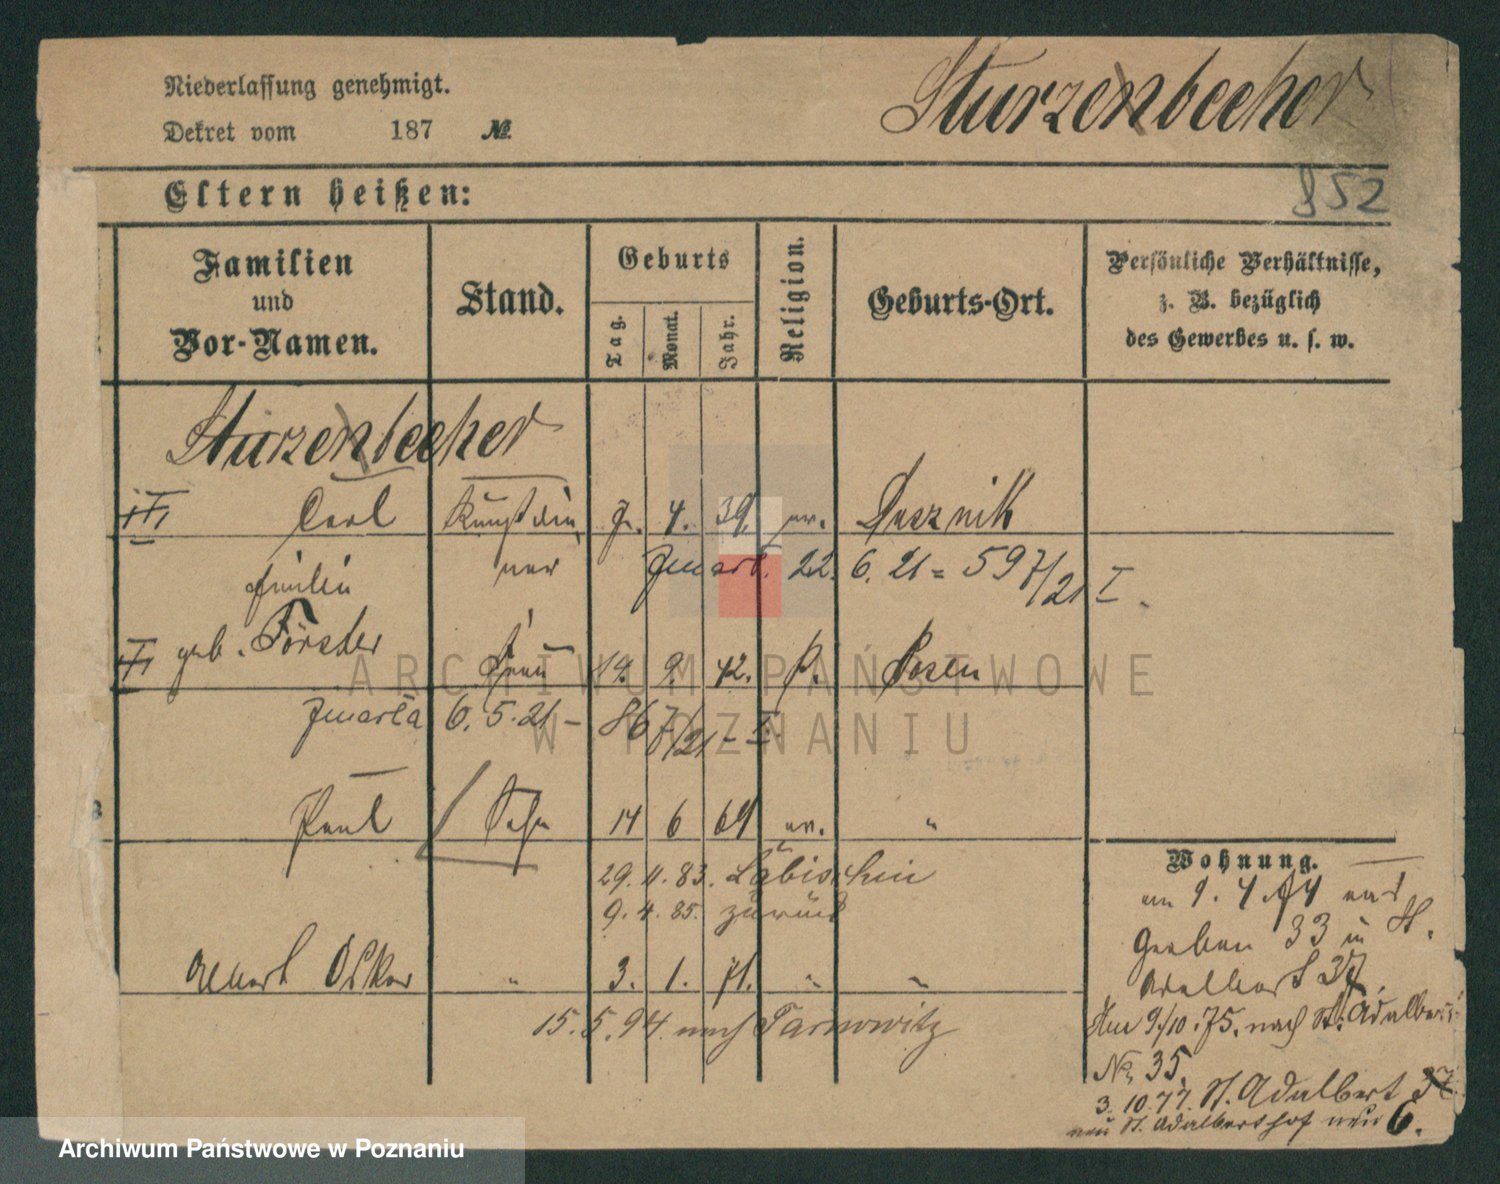 Niederlassung genehmigt.
Dekret vom 187 №
Sturzenbecher
Eltern heißen:
852
Familien und Vor-Namen.
Stand.
Geburts
Tag.
Monat.
Jahr.
Religion.
Geburts-Ort.
Persönliche Verhältnisse,
z. B. bezüglich
des Gewerbes u. s. w.
Sturzenbecher
Carl 7. 4. 39. ev. Dusznik
Emilie ner Zmarł. 22. 6. 21 = 597/21 I.
geb. Förster Frau 19. 9. 42. Posen
Zmarła 6. 5. 21 - 867/21 - I.
Paul Sohn 14 6 69 ev. "
29. 11. 83. Labischin
9. 4. 85. zurück
Albert Oskar " 3. 1. 71. " "
15. 5. 94. nach Tarnowitz
Wohnung.
am 1. 4. 74 nach
Graben 33 in St.
Adalbert 37
Am 9/10. 75. nach St. Adalbert
No. 35.
3. 10. 77. St. Adalbert 37
neu St. Adalberthof neu 6.
ARCHIWUM PAŃSTWOWE
W POZNANIU
Archiwum Państwowe w Poznaniu